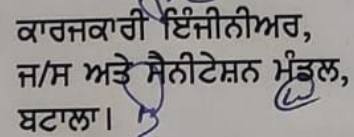 ਕਾਰਜਕਾਰੀ ਇੰਜੀਨੀਅਰ,
ਜ/ਸ ਅਤੇ ਸੈਨੀਟੇਸ਼ਨ ਮੰਡਲ,
ਬਟਾਲਾ।